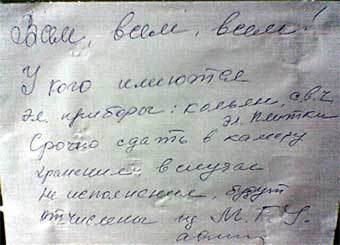 Всем, всем, всем!
У кого имеются
Эл. приборы: кальян, с.в.ч.
эл. плитки
Срочно сдать в камеру
хранения, в случае
не исполнения, будут
отчислены из М.Г.У.
админ